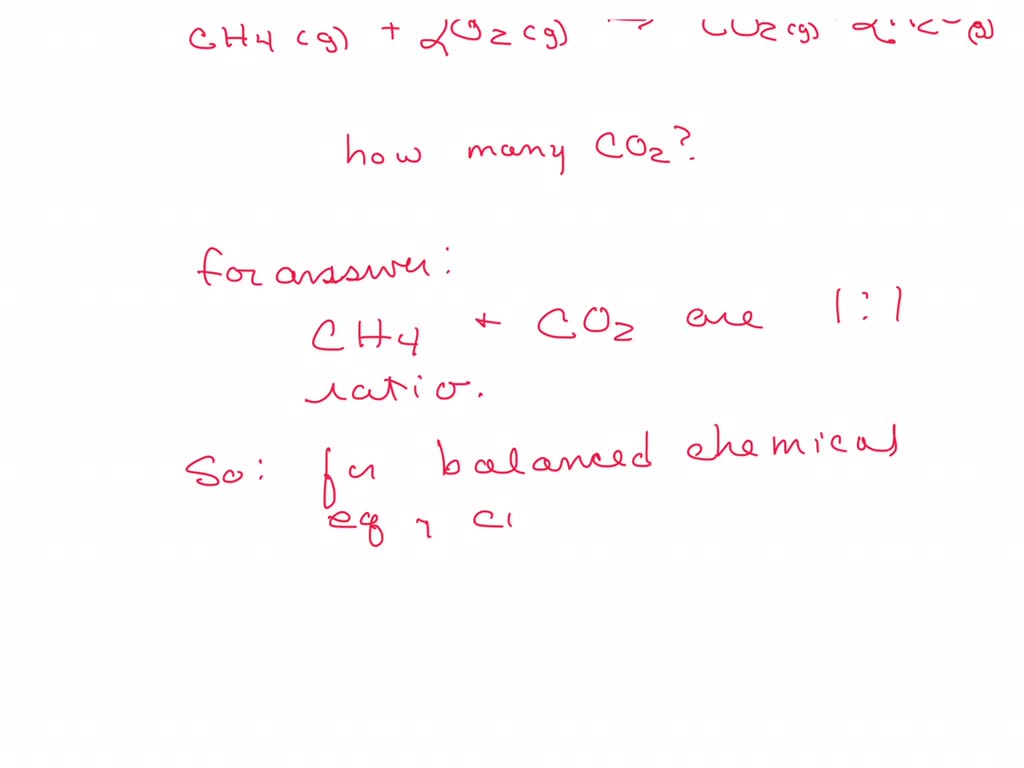 CH4 (g) + 2O2 (g) → CO2 (g) 2H2O (g)
how many CO2?
for ansswer:
CH4 + CO2 are 1:1
ratio.
So: for balanced chemical
eq,